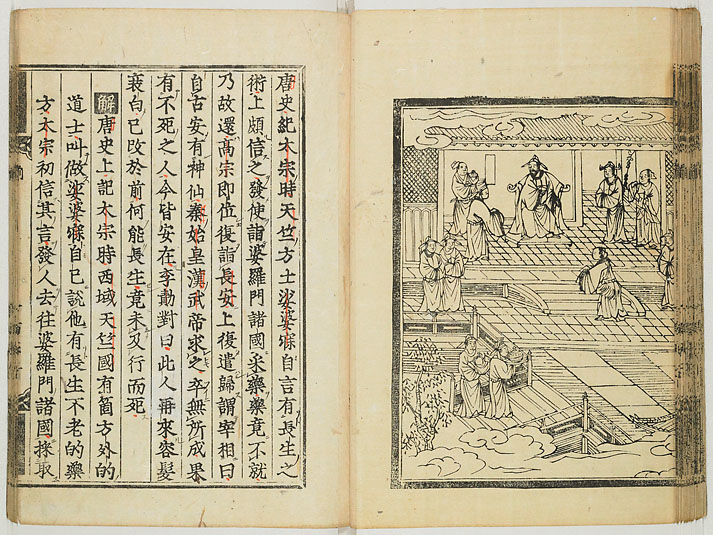 唐史紀太宗時天竺方士娑婆寐自言有長生之
術上頗信之發使詣婆羅門諸國采藥藥竟不就
乃放還高宗即位復詣長安上復遣歸謂宰相曰
自古安有神仙秦始皇漢武帝求之卒無所成果
有不死之人今皆安在李勣對曰此人再來容髮
衰白已改於前何能長生竟未及行而死
解唐史上記太宗時西域天竺國有箇方外的
道士叫做娑婆寐自己說他有長生不老的藥
方太宗初信其言發人去往婆羅門諸國採取